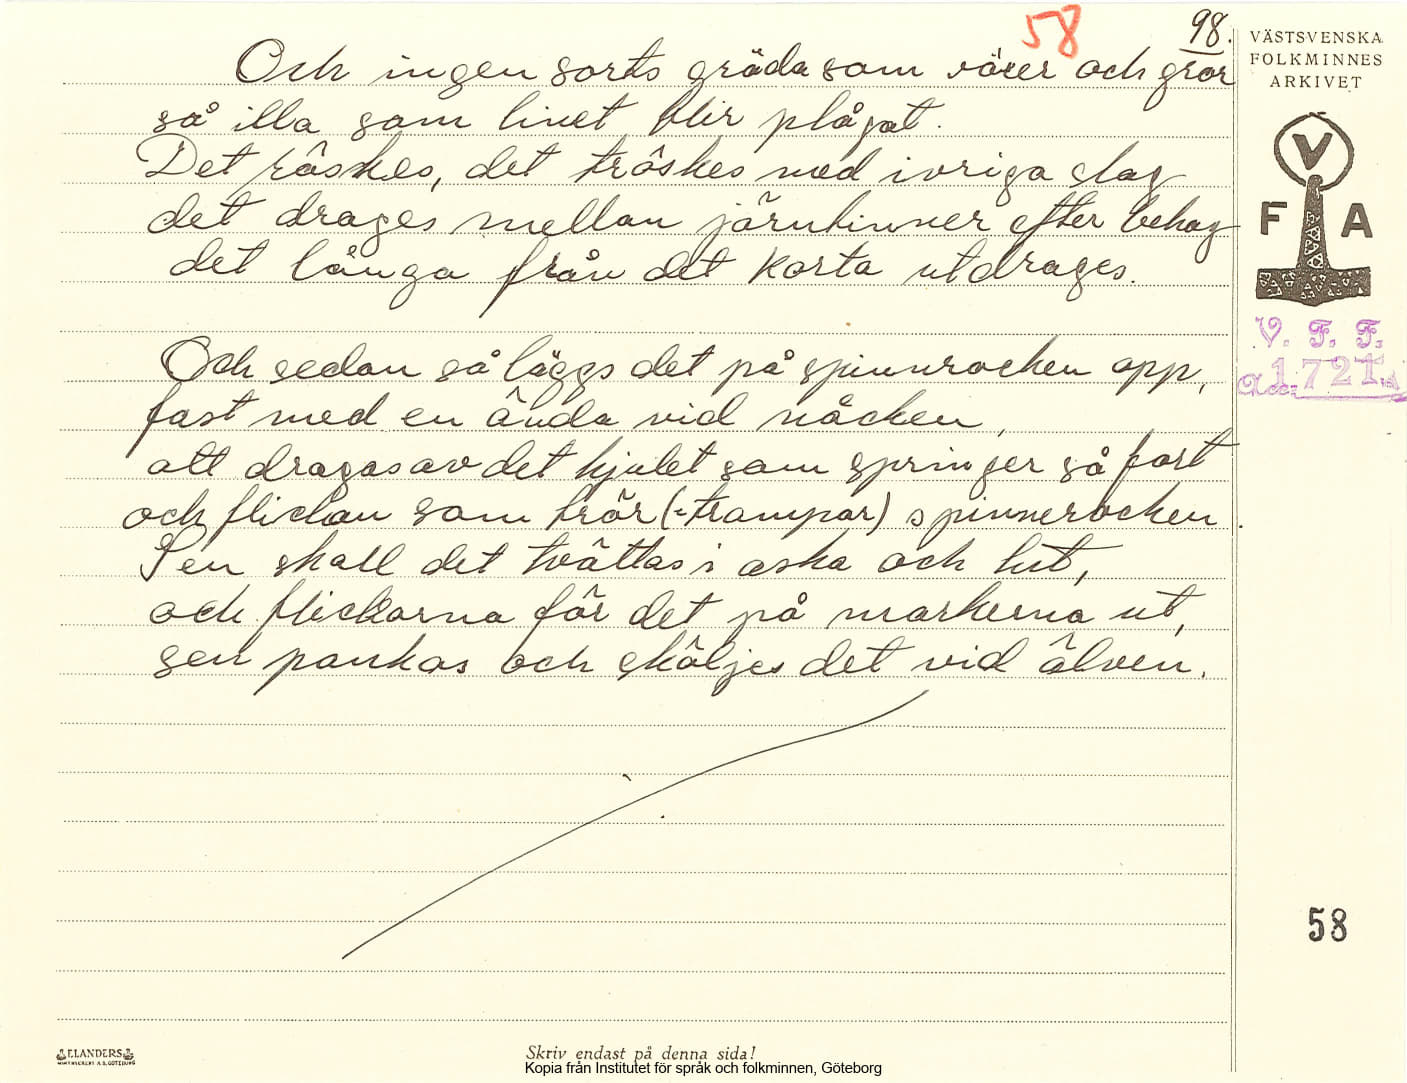 58
98.
Och ingen sorts gröda som växer och gror
så illa som linet blir plågat.
Det röskes, det tröskes med ivriga slag
det drages mellan järntinner efter behag
det långa från det korta utdrages.
Och sedan så läggs det på spinnrocken opp,
fast med en ända vid nåcken,
att dragas av det hjulet som springer så fort
och flickan som trör (=trampar) spinnerocken.
Sen skall det tvättas i aska och lut,
och flickorna för det på markerna ut,
sen pankas och sköljes det vid älven.
VÄSTSVENSKA
FOLKMINNES
ARKIVET
V
F A
V. F. F.
Acc. 1721
58
ELANDERS
Skriv endast på denna sida!
Kopia från Institutet för språk och folkminnen, Göteborg